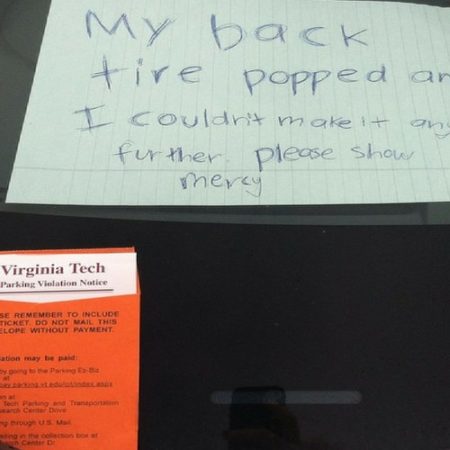 My back
tire popped
I couldn't make it
further. please show
mercy
Virginia Tech
Parking Violation Notice
REMEMBER TO INCLUDE
TICKET. DO NOT MAIL THIS
WITHOUT PAYMENT.
may be paid:
by going to the Parking Ez-Biz
at
Tech Parking and Transportation
Center Dove
through U.S. Mail.
in the collection box at
Center